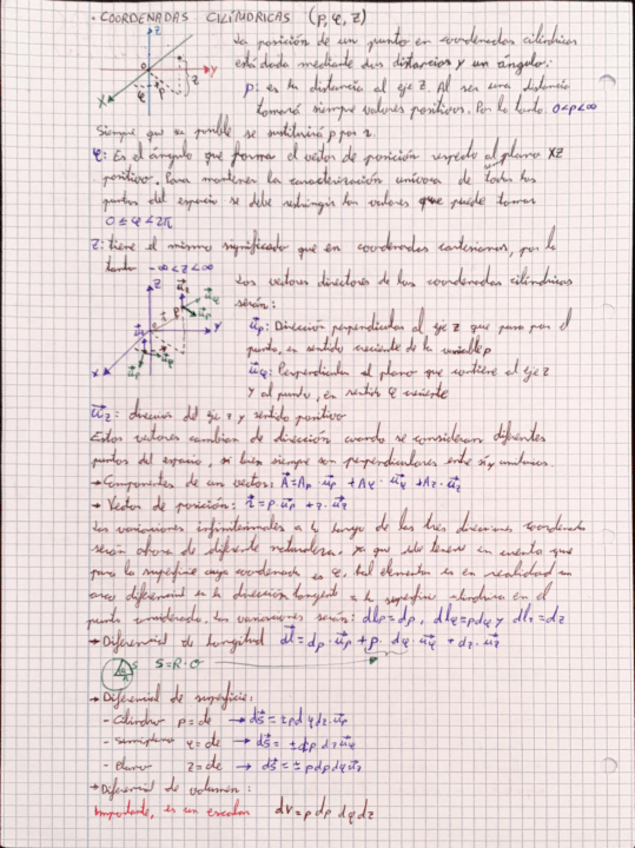 · COORDENADAS CILÍNDRICAS (ρ, φ, z)
La posición de un punto en coordenadas cilíndricas
está dada mediante dos distancias y un ángulo:
ρ: es la distancia al eje z. Al ser una distancia
tomará siempre valores positivos. Por lo tanto 0<ρ<∞
Siempre que sea posible se sustituirá ρ por r.
φ: Es el ángulo que forma el vector de posición respecto al plano XZ
positivo. Para mantener la caracterización unívoca de todos los
puntos del espacio se debe restringir los valores que puede tomar
0 ≤ φ < 2π
z: tiene el mismo significado que en coordenadas cartesianas, por lo
tanto -∞<z<∞
Los vectores directores de las coordenadas cilíndricas
serán:
u⃗ρ: Dirección perpendicular al eje z que pasa por el
punto, en sentido creciente de la variable ρ
u⃗φ: Perpendicular al plano que contiene al eje z
y al punto, en sentido φ creciente
u⃗z: dirección del eje z y sentido positivo
Estos vectores cambian de dirección cuando se consideran diferentes
puntos del espacio, si bien siempre son perpendiculares entre sí y unitarios.
→ Componentes de un vector: A⃗=Aρ · u⃗ρ + Aφ · u⃗φ + Az · u⃗z
→ Vector de posición: r⃗ = ρ · u⃗ρ + z · u⃗z
Las variaciones infinitesimales a lo largo de las tres direcciones coordenadas
serán ahora de diferente naturaleza, ya que debe tenerse en cuenta que
para la superficie cuya coordenada es φ, tal elemento es en realidad un
arco diferencial en la dirección tangente a la superficie cilíndrica en el
punto considerado. Las variaciones serán: dlρ = dρ, dlφ = ρdφ y dlz = dz
→ Diferencial de longitud dl⃗ = dρ · u⃗ρ + ρ · dφ · u⃗φ + dz · u⃗z
S = R · σ
→ Diferencial de superficie:
- Cilindro ρ = cte → dS⃗ = ±ρ dφ dz · u⃗ρ
- Semiplano φ = cte → dS⃗ = ± dρ dz u⃗φ
- Plano z = cte → dS⃗ = ± ρ dρ dφ u⃗z
→ Diferencial de volumen:
Importante, es un escalar dV = ρ dρ dφ dz